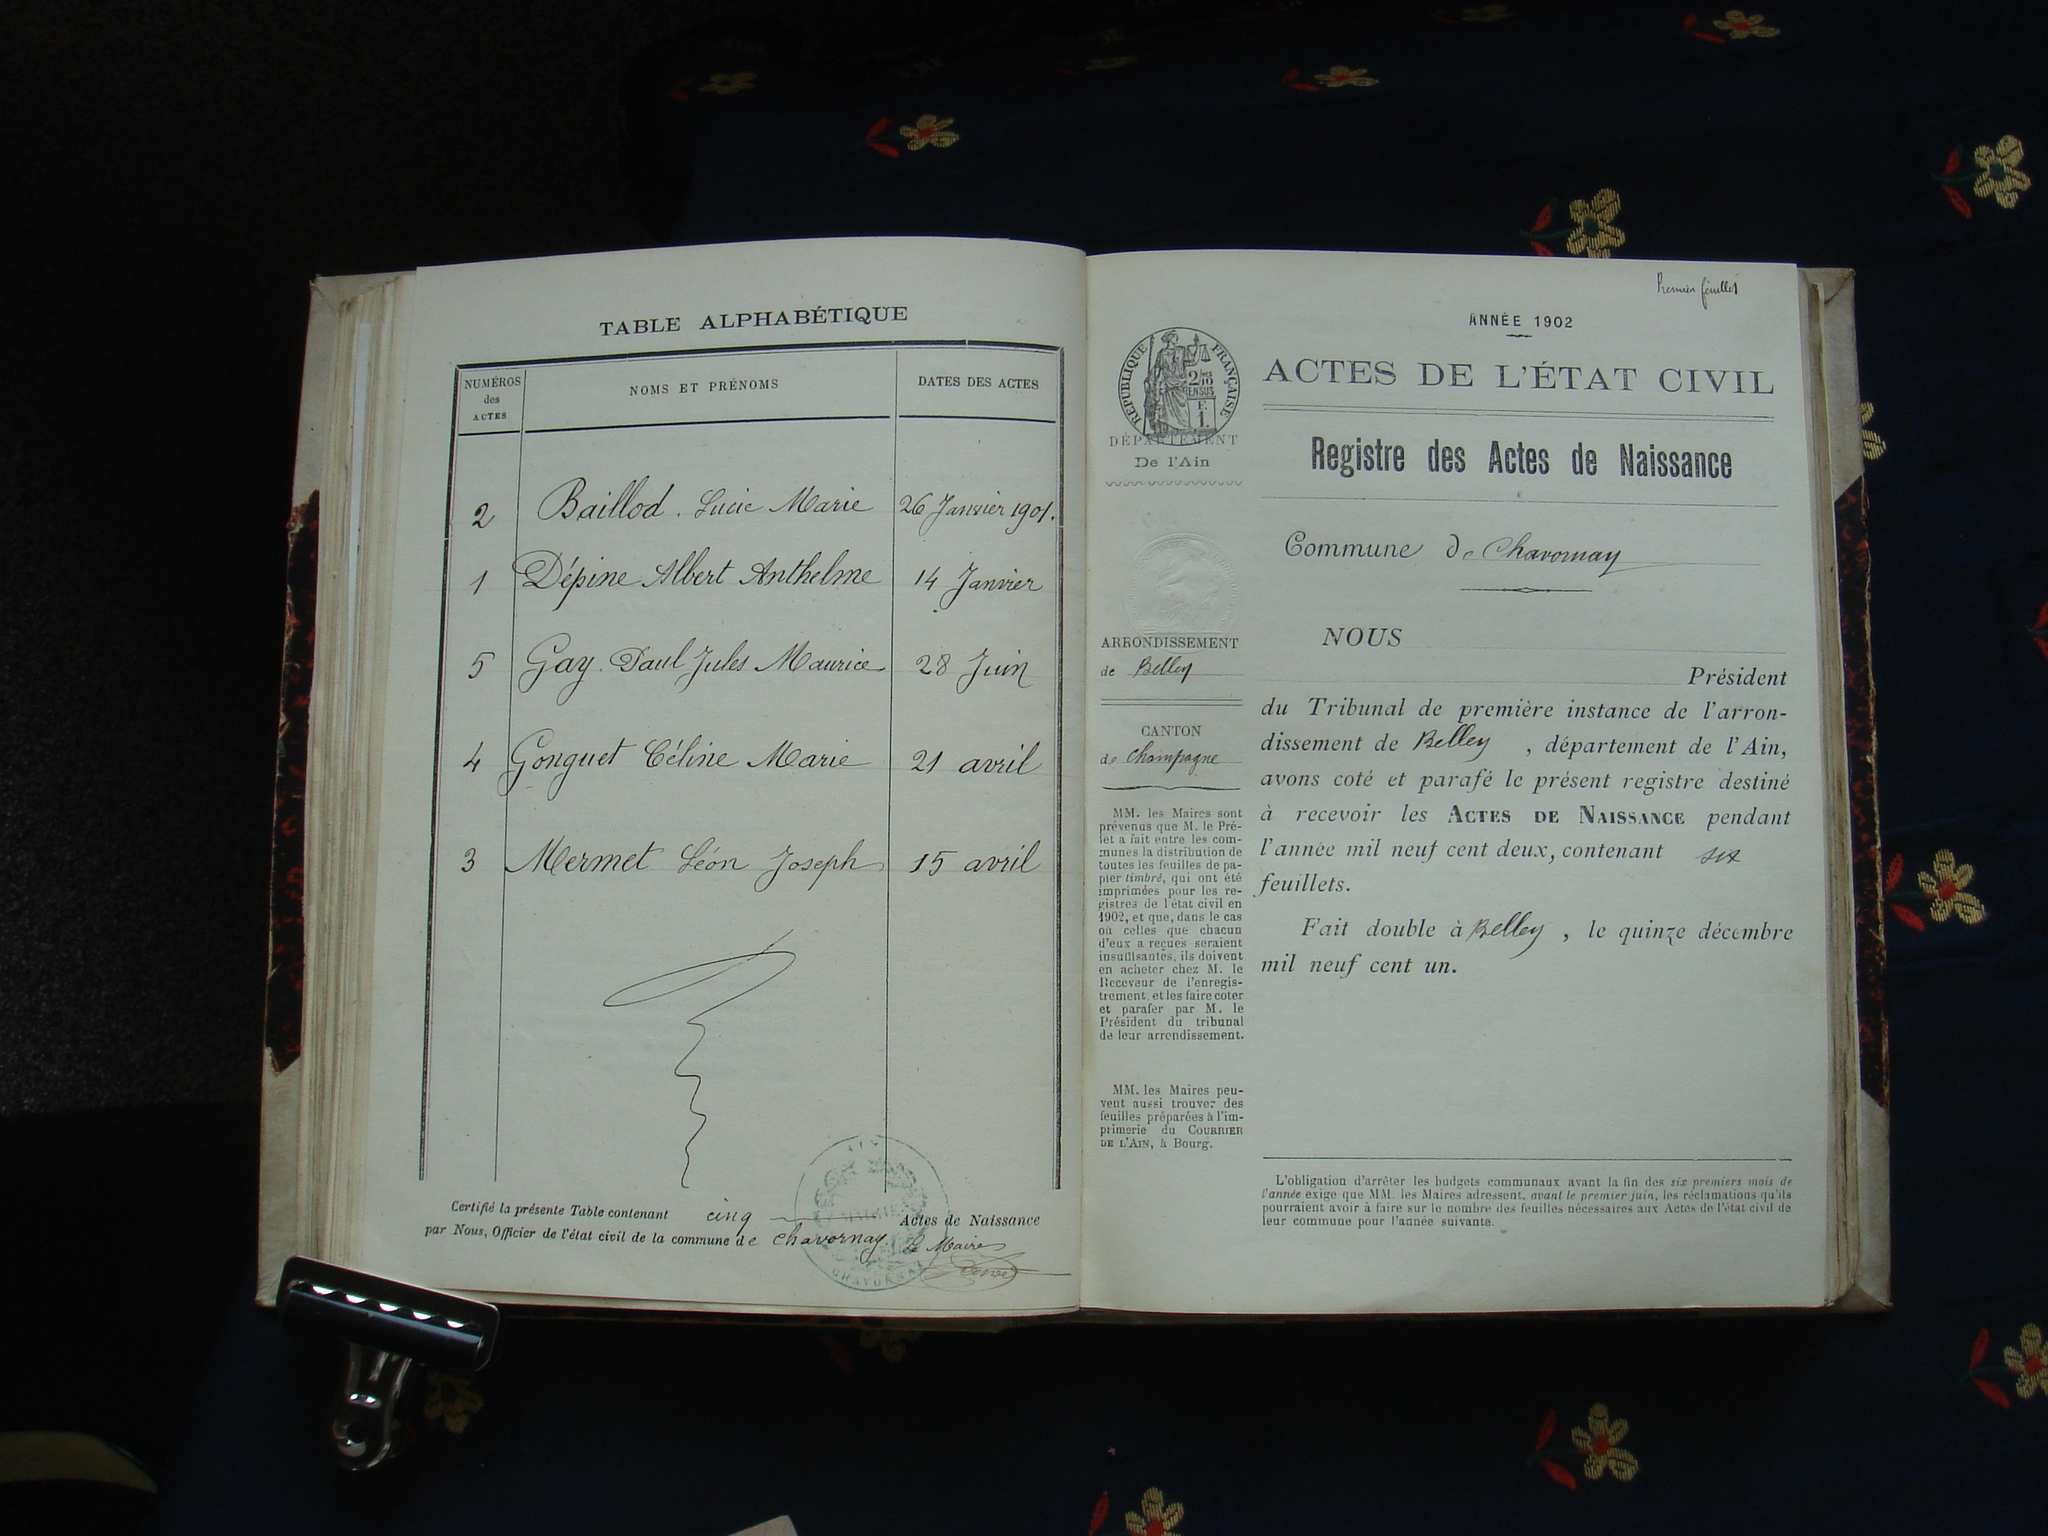 TABLE ALPHABÉTIQUE
NUMÉROS
des
ACTES
NOMS ET PRÉNOMS
DATES DES ACTES
2 Baillod. Lucie Marie 26 Janvier 1901.
1 Dépine Albert Anthelme 14 Janvier
5 Gay. Paul Jules Maurice 28 Juin
4 Gonguet Céline Marie 21 avril
3 Mermet Léon Joseph 15 avril
Certifié la présente Table contenant cinq Actes de Naissance
par Nous, Officier de l'état civil de la commune de Chavornay Le Maire
MAIRIE
CHAVORNAY
Premier feuillet
ANNÉE 1902
RÉPUBLIQUE FRANÇAISE
2/10
EN SUS
F.
1.
DÉPARTEMENT
De l'Ain
ARRONDISSEMENT
de Belley
CANTON
de Champagne
MM. les Maires sont
prévenus que M. le Pré-
fet a fait entre les com-
munes la distribution de
toutes les feuilles de pa-
pier timbré, qui ont été
imprimées pour les re-
gistres de l'état civil en
1902, et que, dans le cas
où celles que chacun
d'eux a reçues seraient
insuffisantes, ils doivent
en acheter chez M. le
Receveur de l'enregis-
trement, et les faire coter
et parafer par M. le
Président du tribunal
de leur arrondissement.
MM. les Maires peu-
vent aussi trouver des
feuilles préparées à l'im-
primerie du COURRIER
DE L'AIN, à Bourg.
ACTES DE L'ÉTAT CIVIL
Registre des Actes de Naissance
Commune de Chavornay
NOUS
Président
du Tribunal de première instance de l'arron-
dissement de Belley, département de l'Ain,
avons coté et parafé le présent registre destiné
à recevoir les ACTES DE NAISSANCE pendant
l'année mil neuf cent deux, contenant six
feuillets.
Fait double à Belley, le quinze décembre
mil neuf cent un.
L'obligation d'arrêter les budgets communaux avant la fin des six premiers mois de
l'année exige que MM. les Maires adressent, avant le premier juin, les réclamations qu'ils
pourraient avoir à faire sur le nombre des feuilles nécessaires aux Actes de l'état civil de
leur commune pour l'année suivante.